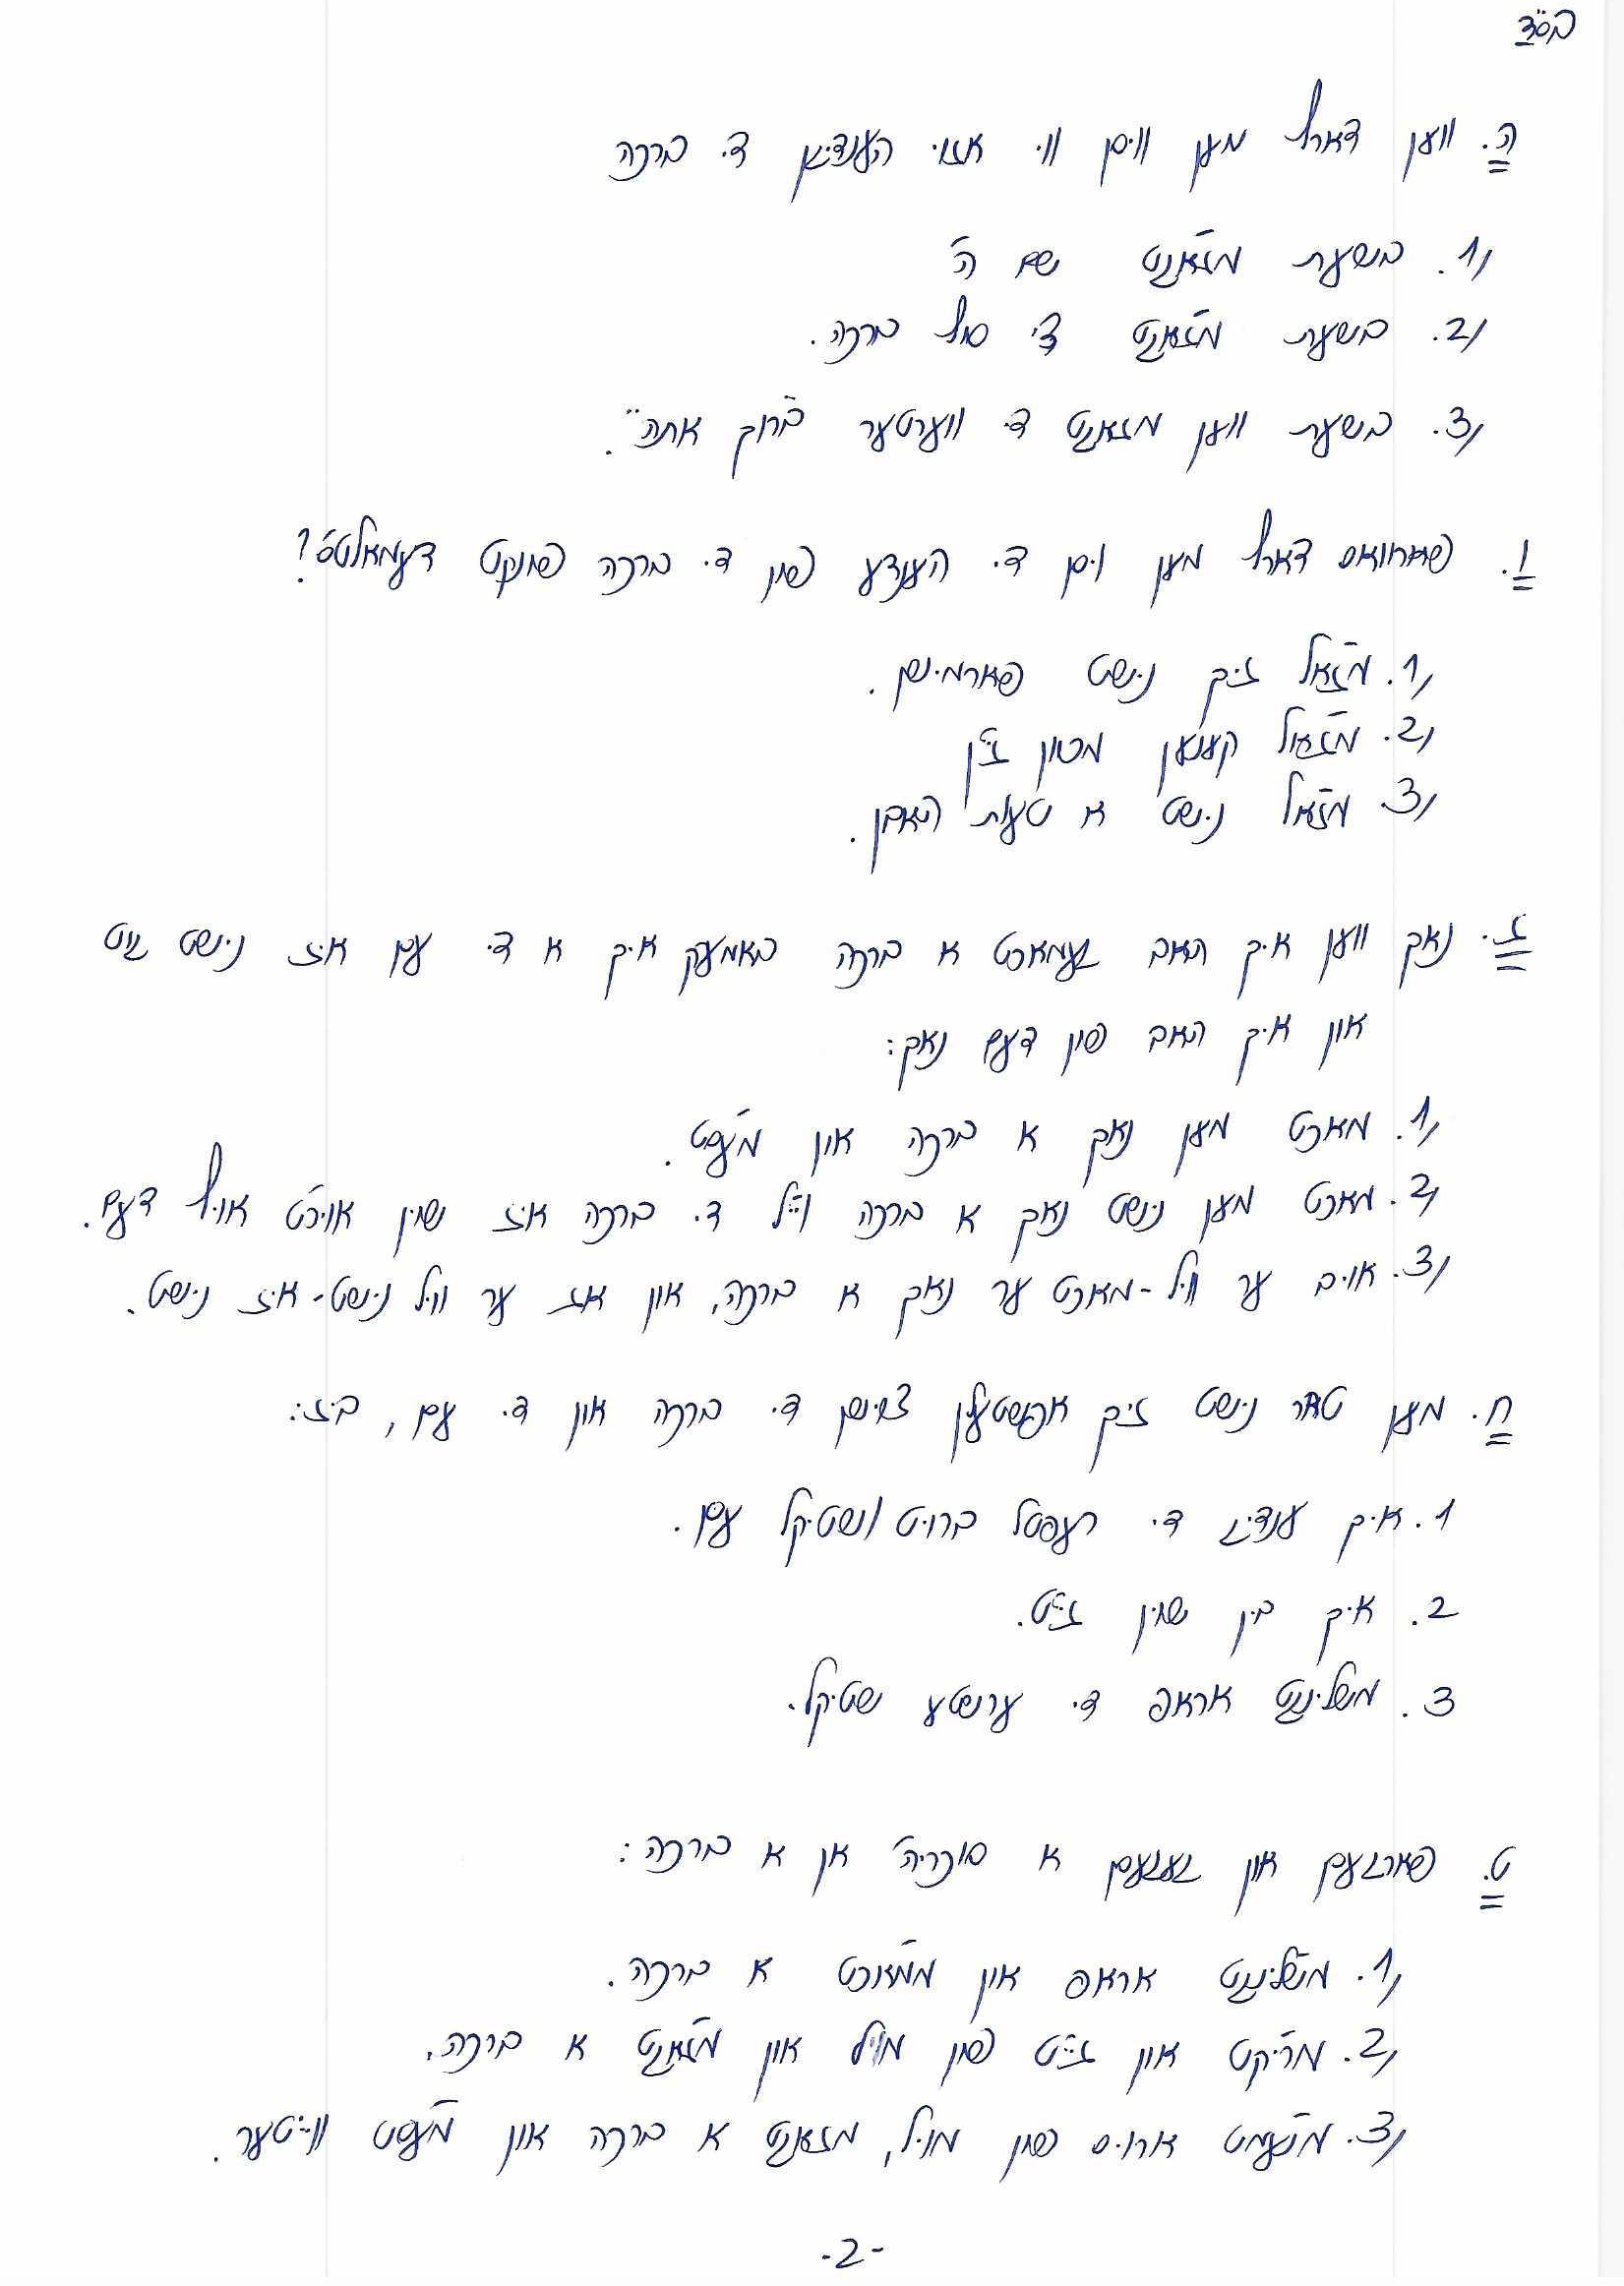 בס"ד
ה. ווען דארף מען וויסן ווי אזוי הענדיגן די ברכה
1. בשעת מ'זאגט שם ה'
2. בשעת מ'זאגט די סוף ברכה.
3. בשעת ווען מ'זאגט די ווערטער "ברוך אתה".
ו. פארוואס דארף מען וויסן די הענדע פון די ברכה פונקט דעמאלטס?
1. מ'זאל זיך נישט פארמישן.
2. מ'זאל קענען מכוון זיין
3. מ'זאל נישט א טעות האבן.
ז. נאך ווען איך האב געמאכט א ברכה באמערק איך א די עסן איז נישט גוט
און איך האב פון דעם נאך:
1. מאכט מען נאך א ברכה און מ'עסט.
2. מאכט מען נישט נאך א ברכה ווייל די ברכה איז שוין אויכ'ט אויף דעם.
3. אויב ער וויל - מאכט ער נאך א ברכה, און אז ער וויל נישט - איז נישט.
ח. מען טאר נישט זיך אפשטעלן צווישן די ברכה און די עסן, ביז:
1. איך ענדיג די רעפטל ברויט/שטיקל עסן.
2. איך בין שוין זייט.
3. מ'שלינגט אראפ די ערשטע שטיקל.
ט. פארגעסן און געגעסן א סוכריה אן א ברכה:
1. מ'שלינגט אראפ און מ'מאכט א ברכה.
2. מ'רוקט און זייט פון מויל און מ'זאגט א ברכה.
3. מ'נעמט ארויס פון מויל, מ'זאגט א ברכה און מ'עסט ווייטער.
-2-